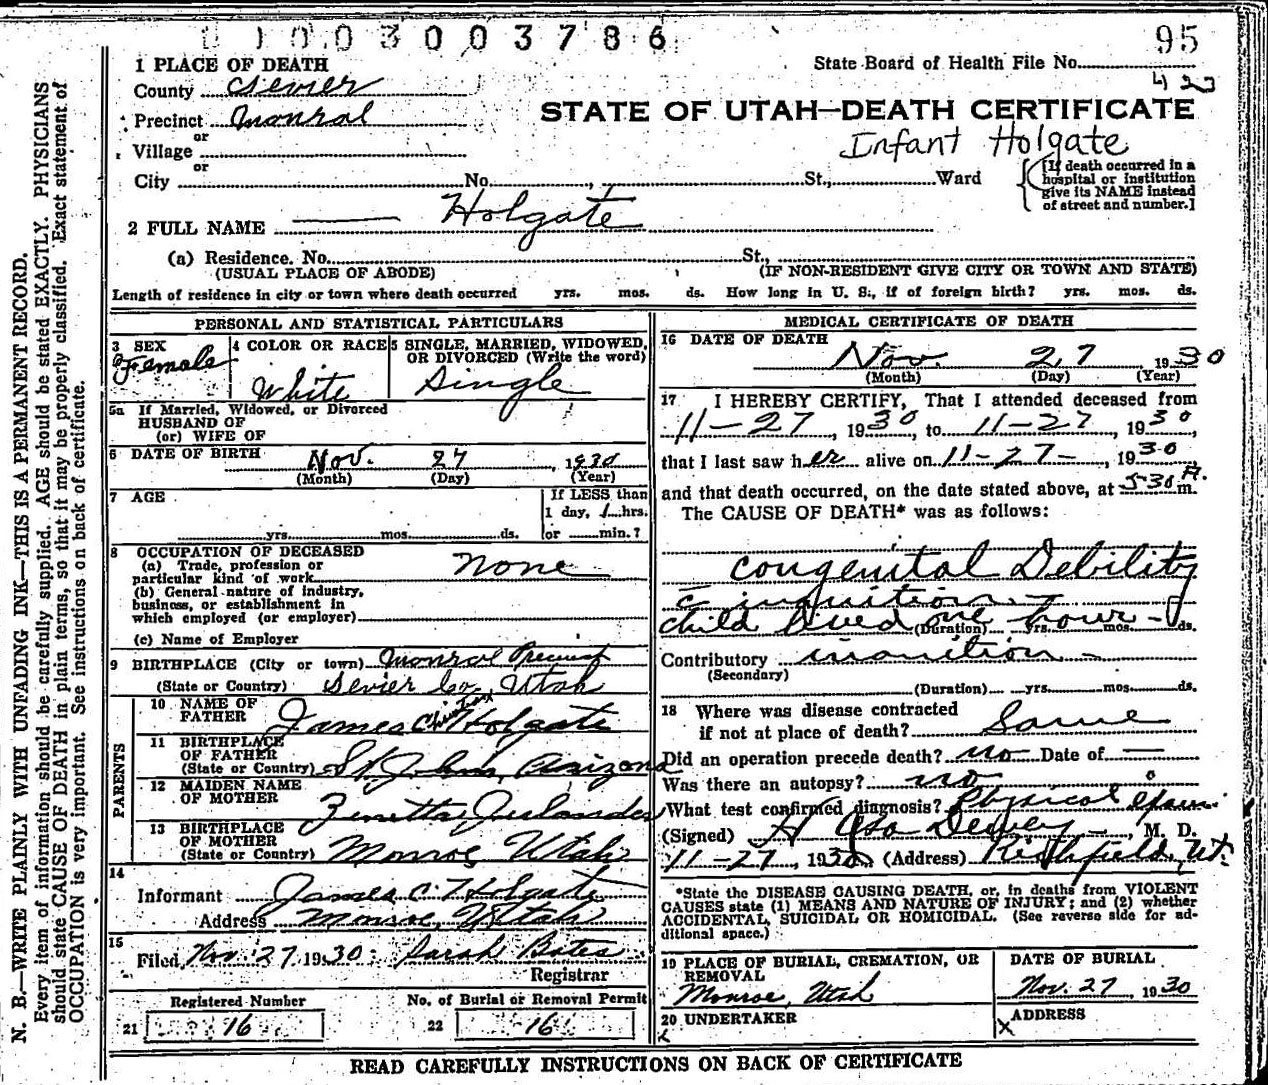 0 1 0 0 3 0 0 3 7 8 6
95
1 PLACE OF DEATH
State Board of Health File No.
County Sevier
423
Precinct Monroe
STATE OF UTAH—DEATH CERTIFICATE
or
Infant Holgate
Village
or
City No. , St., Ward
[If death occurred in a
hospital or institution
give its NAME instead
of street and number.]
2 FULL NAME Holgate
(a) Residence. No. St.,
(USUAL PLACE OF ABODE) (IF NON-RESIDENT GIVE CITY OR TOWN AND STATE)
Length of residence in city or town where death occurred yrs. mos. ds. How long in U. S., if of foreign birth? yrs. mos. ds.
PERSONAL AND STATISTICAL PARTICULARS
3 SEX
Female
4 COLOR OR RACE
White
5 SINGLE, MARRIED, WIDOWED,
OR DIVORCED (Write the word)
Single
5a If Married, Widowed, or Divorced
HUSBAND OF
(or) WIFE OF
6 DATE OF BIRTH Nov. 27, 1930
(Month) (Day) (Year)
7 AGE
If LESS than
1 day, 1 hrs.
yrs. mos. ds. or min.?
8 OCCUPATION OF DECEASED
(a) Trade, profession or
particular kind of work
None
(b) General nature of industry,
business, or establishment in
which employed (or employer)
(c) Name of Employer
9 BIRTHPLACE (City or town) Monroe Precinct
(State or Country) Sevier Co, Utah
PARENTS
10 NAME OF
FATHER James Christian Holgate
11 BIRTHPLACE
OF FATHER
(State or Country) St. Johns, Arizona
12 MAIDEN NAME
OF MOTHER
13 BIRTHPLACE
OF MOTHER
(State or Country) Monroe, Utah
14
Informant James C. Holgate
Address Monroe, Utah
15
Filed Nov. 27 1930. Sarah Bates
Registrar
Registered Number
21 16
No. of Burial or Removal Permit
22 16
MEDICAL CERTIFICATE OF DEATH
16 DATE OF DEATH
Nov. 27 1930
(Month) (Day) (Year)
17 I HEREBY CERTIFY, That I attended deceased from
11-27, 1930, to 11-27, 1930,
that I last saw her alive on 11-27-, 1930
and that death occurred, on the date stated above, at 5-30 A. m.
The CAUSE OF DEATH* was as follows:
Congenital Debility
c̄ inanition-
child lived one hour-
(Duration) yrs. mos. ds.
Contributory inanition-
(Secondary)
(Duration) yrs. mos. ds.
18 Where was disease contracted
if not at place of death? Same
Did an operation precede death? no Date of —
Was there an autopsy? no
What test confirmed diagnosis? Physical Exam.
(Signed) H Asa Dewey, M. D.
11-27, 1930 (Address) Richfield, Ut.
*State the DISEASE CAUSING DEATH, or, in deaths from VIOLENT
CAUSES state (1) MEANS AND NATURE OF INJURY; and (2) whether
ACCIDENTAL, SUICIDAL OR HOMICIDAL. (See reverse side for ad-
ditional space.)
19 PLACE OF BURIAL, CREMATION, OR
REMOVAL
Monroe, Utah
DATE OF BURIAL
Nov. 27, 1930
20 UNDERTAKER
x
ADDRESS
x
READ CAREFULLY INSTRUCTIONS ON BACK OF CERTIFICATE
N. B.—WRITE PLAINLY WITH UNFADING INK—THIS IS A PERMANENT RECORD.
Every item of information should be carefully supplied. AGE should be stated EXACTLY. PHYSICIANS
should state CAUSE OF DEATH in plain terms, so that it may be properly classified. Exact statement of
OCCUPATION is very important. See instructions on back of certificate.